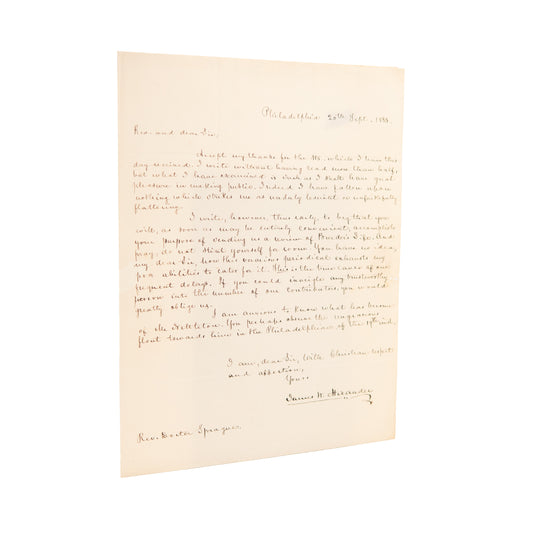 Philadelphia 20th Sept. 1833.
Rev. and dear Sir,
Accept my thanks for the MS. which I have this
day received. I write without having read more than half,
but what I have examined is such as I shall have great
pleasure in making public. Indeed I have fallen upon
nothing which strikes me as unduly or
flattering.
I write, however, thus early, to beg that you
will, as soon as may be entirely convenient, accomplish
your purpose of sending us a review of Life. And
pray, do not stint yourself for room. You have no idea,
my dear Sir, how this periodical exhausts my
poor abilities to cater for it. This is the true cause of our
frequent delays. If you could inveigle any trustworthy
person into the number of our contributors, you would
greatly oblige us.
I am anxious to know what has become
of Mr Nettleton. You perhaps observe the
flout towards him in the Philadelphian of the 19th inst.
I am, dear Sir, with Christian respect
and affection,
Yours
James W. Alexander
Rev. Doctor Sprague.